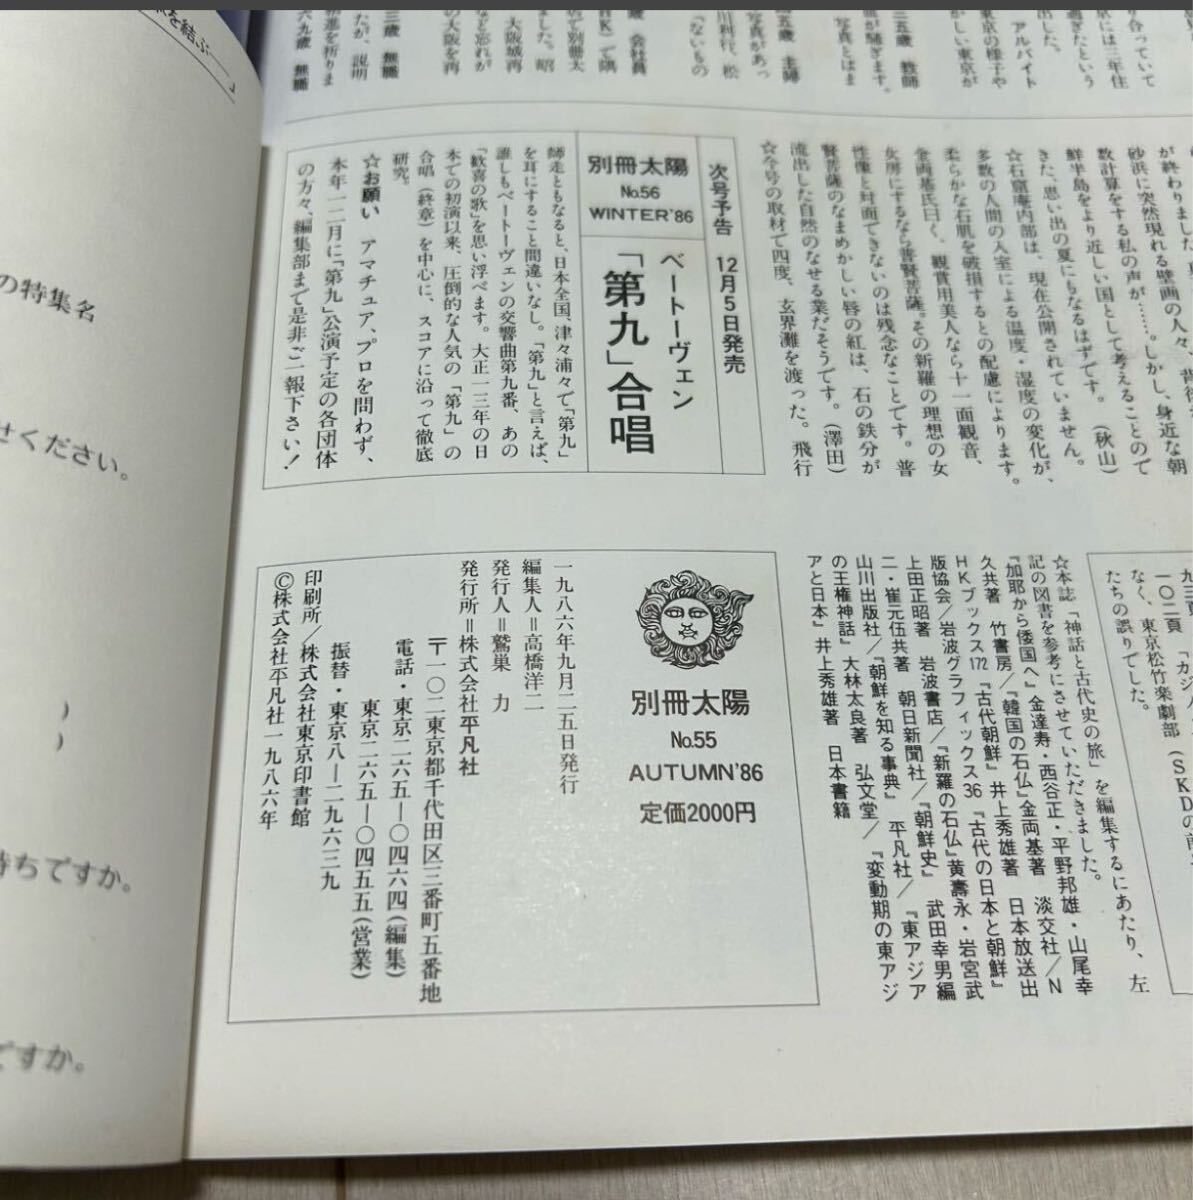 り合っていて
京には三年住
過ぎたという
出した。
アルバイト
東京の様子や
かしい東京が
三五歳 教師
血が騒ぎます。
写真とはま
四五歳 主婦
写真があっ
川利行、松
「ないもの
歳 会社員
HK」で隅
店で別冊太
ました。昭
大阪城再
など忘れが
の大阪を再
三歳 無職
たが、説明
初進を祈りま
六九歳 無職
が終わりました
砂浜に突然現れる壁画の人々、背後
数計算をする私の声が……。しかし、身近な朝
鮮半島をより近しい国として考えることので
きた、思い出の夏にもなるはずです。（秋山）
☆石窟庵内部は、現在公開されていません。
多数の人間の入室による温度・湿度の変化が、
柔らかな石肌を破損するとの配慮によります。
金両基氏曰く、観賞用美人なら十一面観音、
女房にするなら普賢菩薩。その新羅の理想の女
性像と対面できないのは残念なことです。普
賢菩薩のなまめかしい唇の紅は、石の鉄分が
流出した自然のなせる業だそうです。（澤田）
☆今号の取材で四度、玄界灘を渡った。飛行
次号予告 12月5日発売
別冊太陽
No.56
WINTER'86
ベートーヴェン
「第九」合唱
師走ともなると、日本全国、津々浦々で「第九」
を耳にすること間違いなし。「第九」と言えば、
誰しもベートーヴェンの交響曲第九番、あの
「歓喜の歌」を思い浮べます。大正一三年の日
本での初演以来、圧倒的な人気の「第九」の
合唱（終章）を中心に、スコアに沿って徹底
研究。
☆お願い アマチュア、プロを問わず、
本年一二月に「第九」公演予定の各団体
の方々、編集部まで是非ご一報下さい！
九三頁 「カジ
一〇二頁
なく、東京松竹楽劇部（SKDの前
たちの誤りでした。
☆本誌「神話と古代史の旅」を編集するにあたり、左
記の図書を参考にさせていただきました。
『加耶から倭国へ』金達寿・西谷正・平野邦雄・山尾幸
久共著 竹書房／『韓国の石仏』金両基著 淡交社／N
HKブックス172『古代朝鮮』井上秀雄著 日本放送出
版協会／岩波グラフィックス36『古代の日本と朝鮮』
上田正昭著 岩波書店／『新羅の石仏』黄壽永・岩宮武
二・崔元伍共著 朝日新聞社／『朝鮮史』武田幸男編
山川出版社／『朝鮮を知る事典』平凡社／『東アジア
の王権神話』大林太良著 弘文堂／『変動期の東アジ
アと日本』井上秀雄著 日本書籍
別冊太陽
No.55
AUTUMN'86
定価2000円
一九八六年九月二五日発行
編集人＝高橋洋二
発行人＝鷲巣 力
発行所＝株式会社平凡社
〒一〇二東京都千代田区三番町五番地
電話・東京二六五―〇四六四（編集）
東京二六五―〇四五五（営業）
振替・東京八―二九六三九
印刷所／株式会社東京印書館
©株式会社平凡社一九八六年
を結ぶ――」
の特集名
せください。
）
）
待ちですか。
ですか。